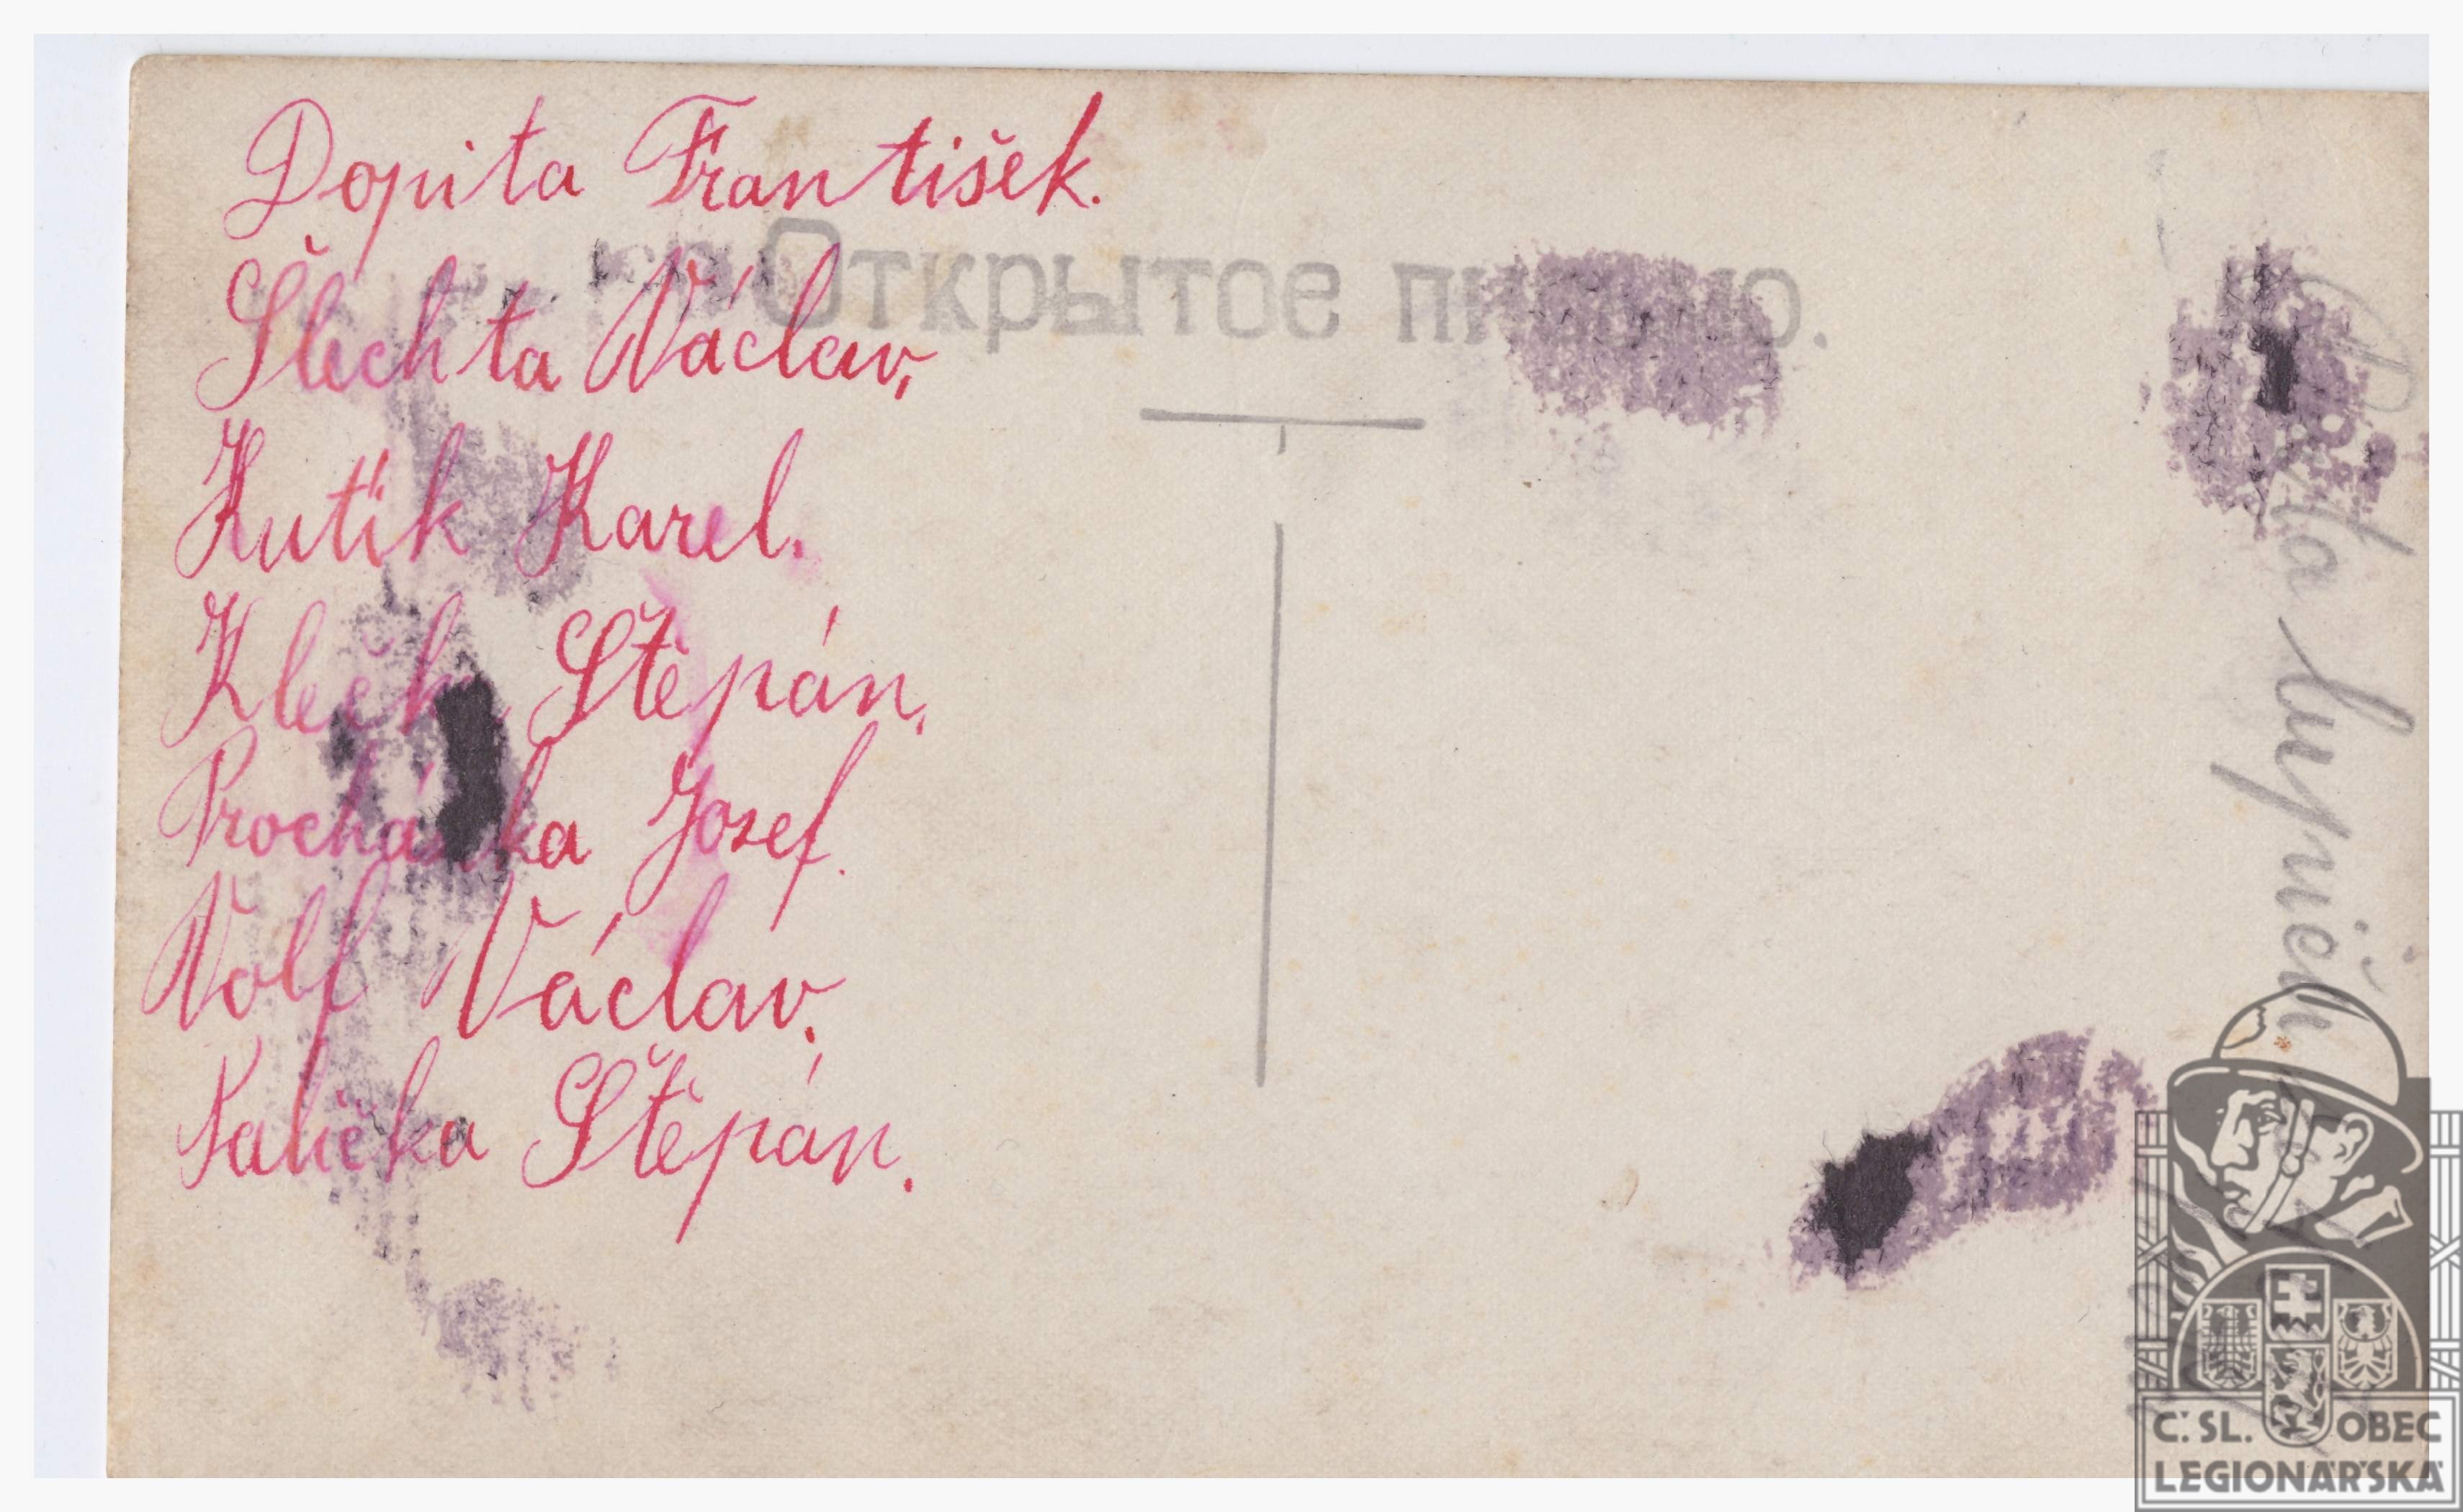 Dopita František.
Šlechta Václav,
Kutík Karel.
Štěpán,
Procházka Josef.
Volf Václav.
Štěpán.
Открытое письмо.
Č. SL. OBEC
LEGIONÁŘSKÁ